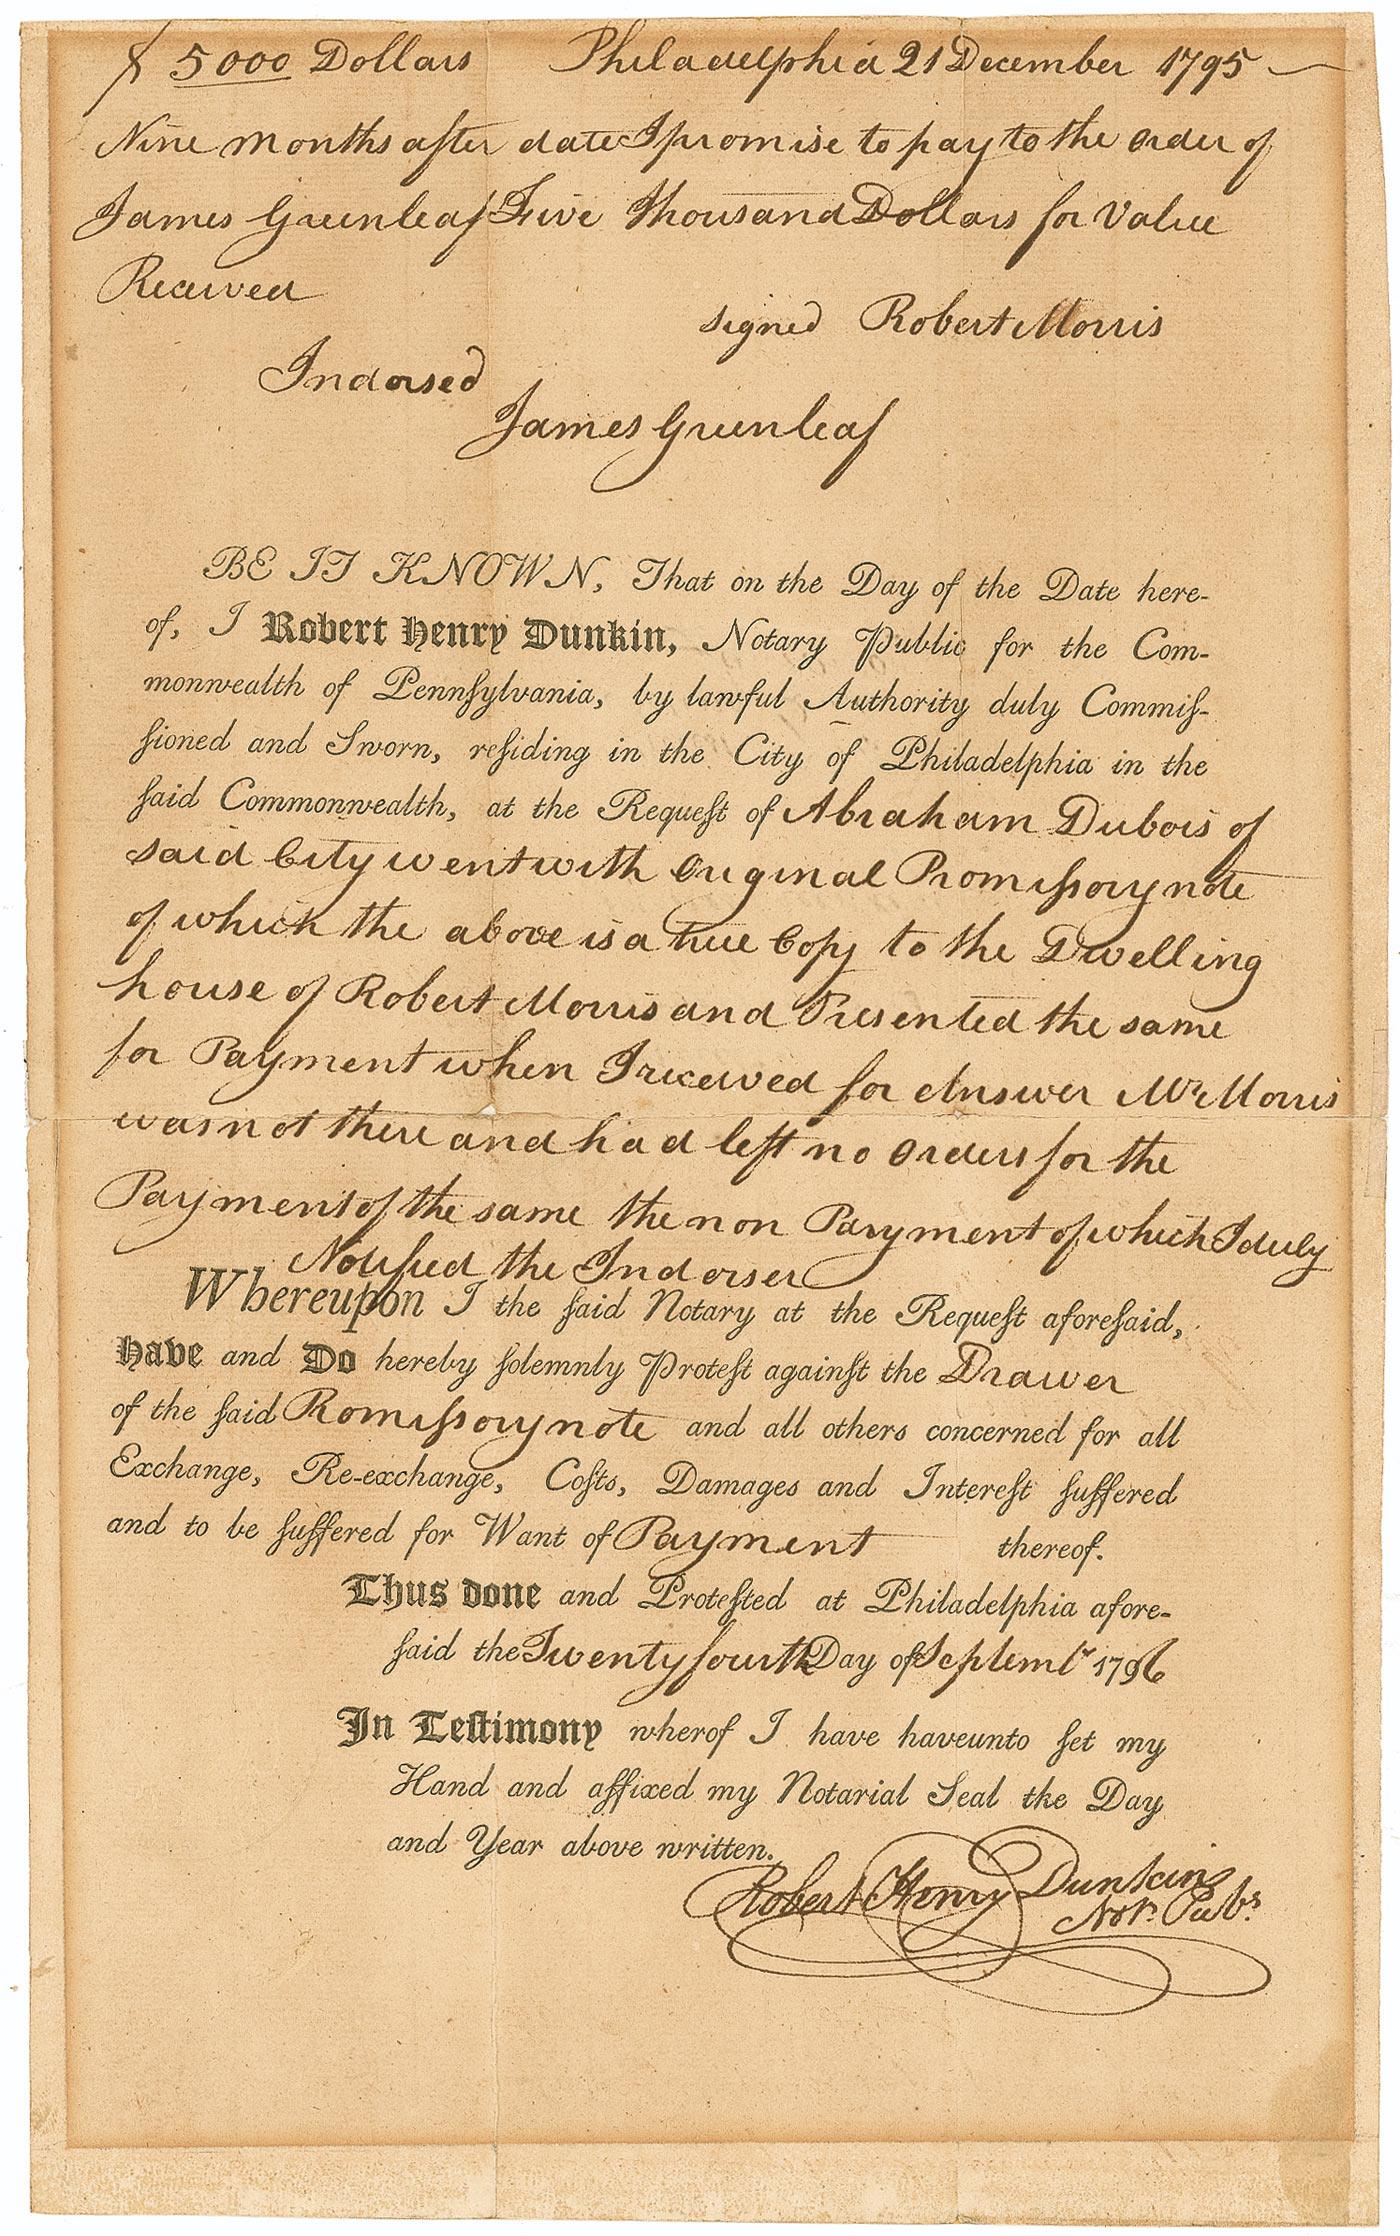 $ 5000 Dollars Philadelphia 21 December 1795
Nine months after date I promise to pay to the order of
James Greenleaf Five Thousand Dollars for Value
Received
signed Robert Morris
Indorsed
James Greenleaf
BE IT KNOWN, That on the Day of the Date here-
of, I Robert Henry Dunkin, Notary Public for the Com-
monwealth of Pennſylvania, by lawful Authority duly Commiſ-
ſioned and Sworn, reſiding in the City of Philadelphia in the
ſaid Commonwealth, at the Requeſt of Abraham Dubois of
said City went with Original Promiſsory note
of which the above is a true Copy to the Dwelling
house of Robert Morris and Presented the same
for Payment when I received for Answer Mr Morris
was not there and had left no Orders for the
Payment of the same the non Payment of which I duly
Notified the Indorser
Whereupon I the ſaid Notary at the Requeſt aforeſaid,
Have and Do hereby ſolemnly Proteſt againſt the Drawer
of the ſaid Promiſsory note and all others concerned for all
Exchange, Re-exchange, Coſts, Damages and Intereſt ſuffered
and to be ſuffered for Want of Payment thereof.
Thus done and Proteſted at Philadelphia afore-
ſaid the Twenty fourth Day of Septemr 1796
In Teſtimony wherof I have haveunto ſet my
Hand and affixed my Notarial Seal the Day
and Year above written.
Robert Henry Dunkin
Not. Pub.